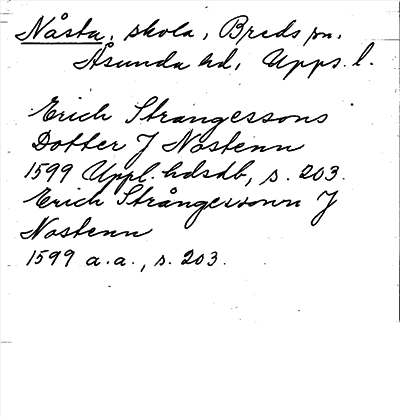 Nåsta, skola, Breds sn,
Åsunda hd, Upps. l.
Erich Strangessons
Dotter J Nostenn
1599 Uppl. hdsdb, s. 203.
Erich Strångessonn J
Nostenn
1599 a.a., s. 203.